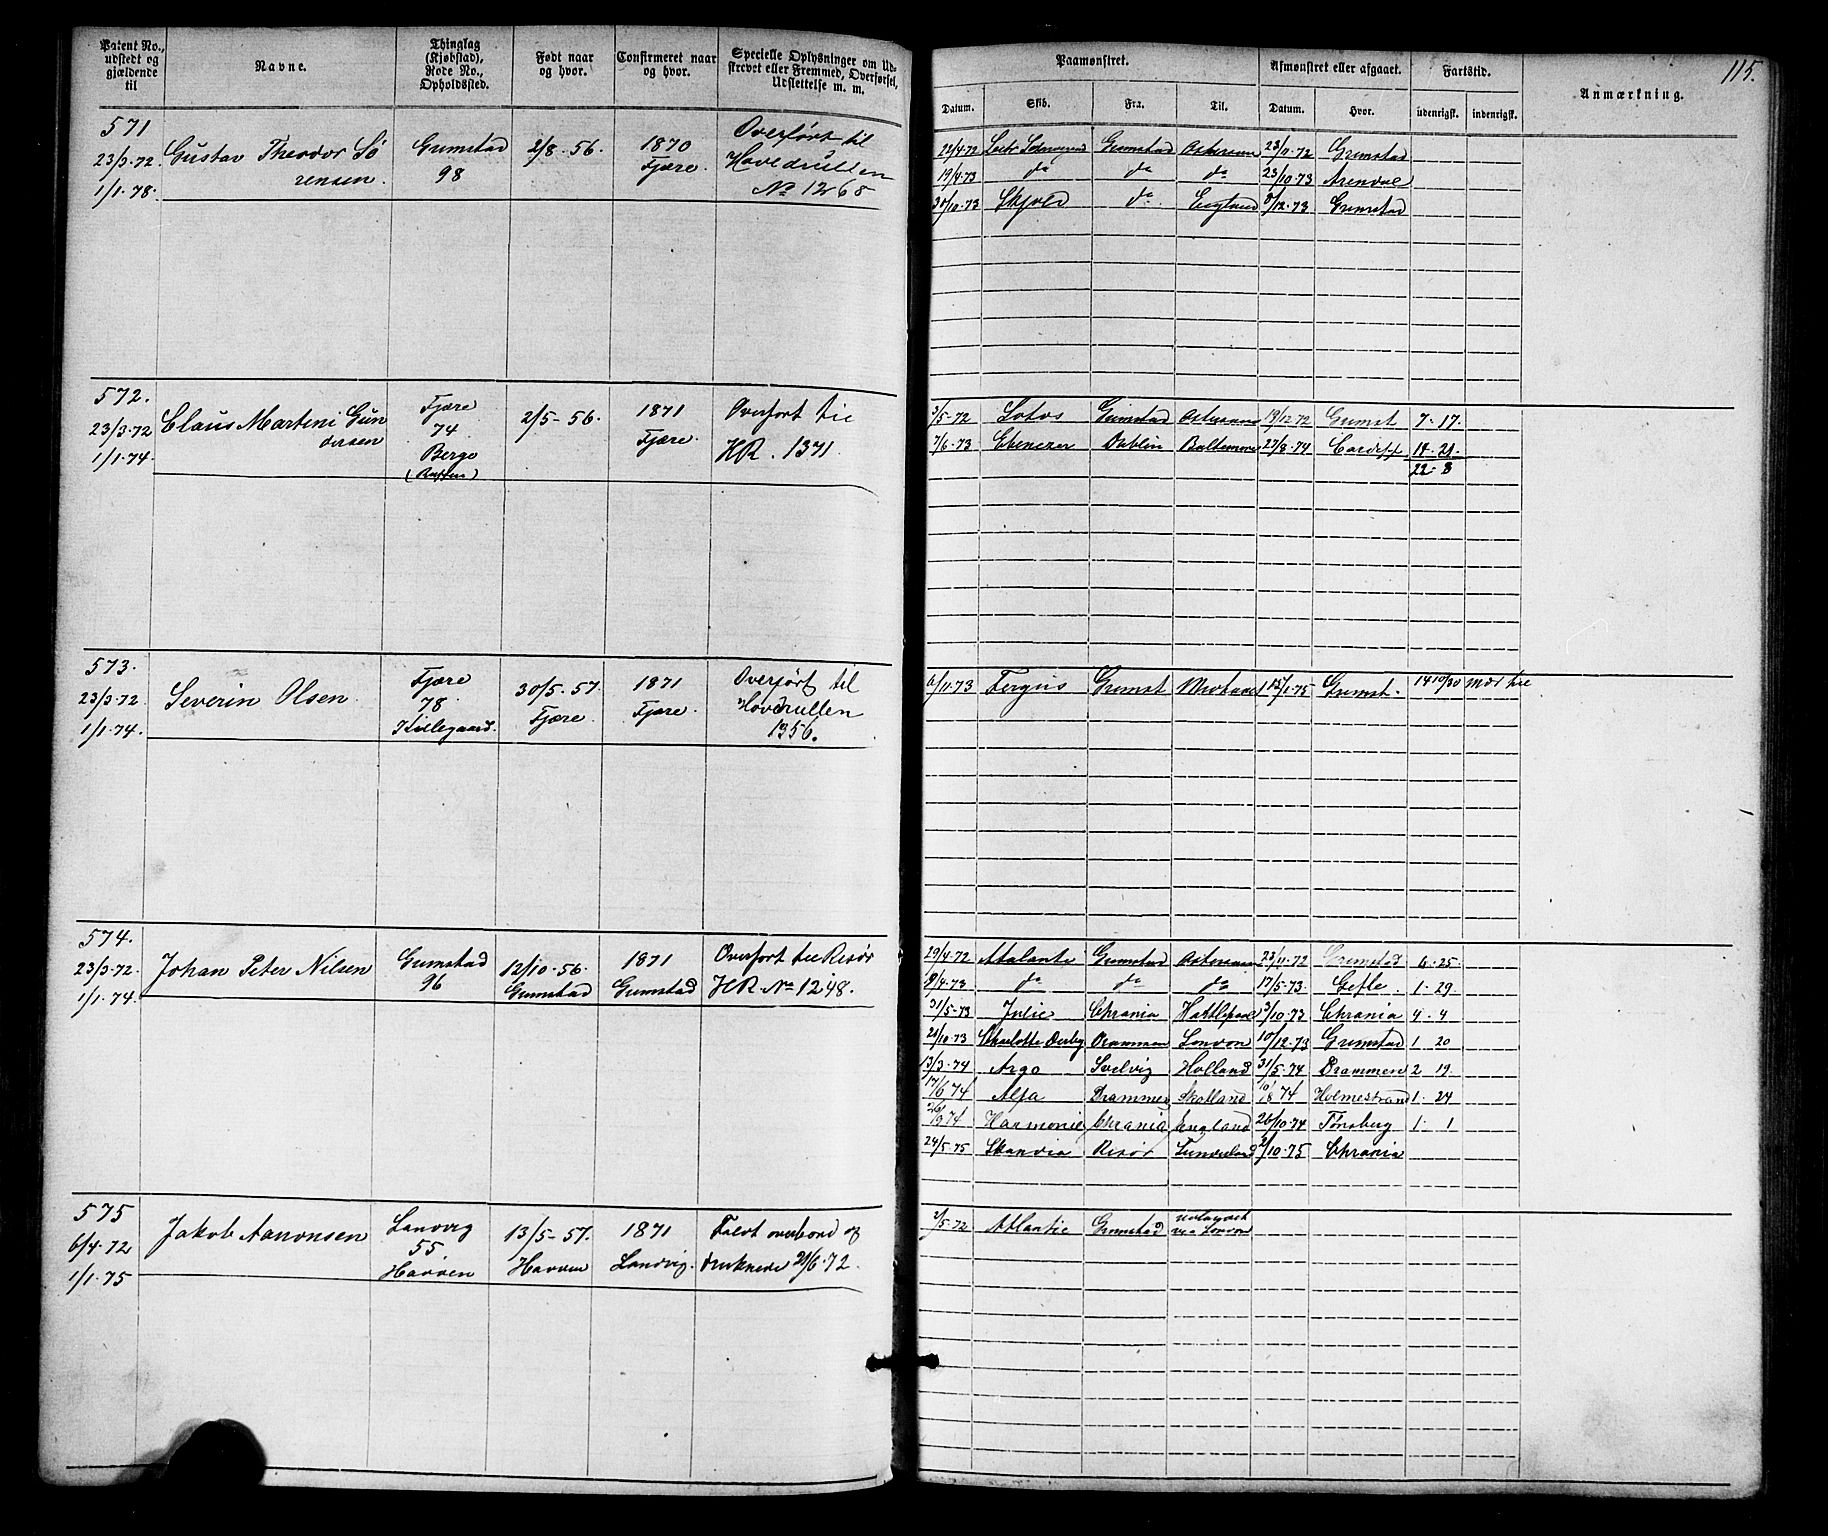 Patent No., udstedt og gjældende til
Navne.
Thinglag (Kjøbstad), Rode No., Opholdssted.
Født naar og hvor.
Confirmeret naar og hvor.
Specielle Oplysninger om Udskrevet eller Fremmed, Overførsel, Udslettelse m. m.
Paamønstret.
Datum.
Skib.
Fra.
Til.
Afmønstret eller afgaaet.
Datum.
Hvor.
Fartstid.
udenrigsk.
indenrigsk.
Anmærkning.
115.
571
23/3.72
1/1.78.
Gustav Theodor Sö
rensen.
Grimstad
98
2/8.56.
1870
Fjære.
Overført til
Hovedrullen
No 1268
29/4.72 Grimstad Østersøen 23/11.72 Grimstad
19/4.73 do do do 23/10.73 Arendal
30/10.73 Skjold do England 8/12.73 Grimstad
572.
23/3.72
1/1.74
Claus Martini Gun
dersen
Fjære
74
Berge
2/5-56.
1871
Fjære.
Overført til
HR. 1371
3/5.72 Lotos Grimstad Østersøen 19/12.72 Grimst 7. 17.
7/6.73 Ebenezer Dublin Baltemore 27/8.74 Cardiff 14. 21.
22. 8
573.
23/3.72
1/1.74.
Severin Olsen
Fjære
78
Killegaard.
30/5.57.
Fjære.
1871
Fjære.
Overført til
Hovedrullen
1356.
6/11.73 Fergus Grimst 15/1.75 Grimst. 14 19/30
574.
23/3.72.
1/1.74.
Johan Peter Nilsen
Grimstad
96
12/10.56.
Grimstad
1871
Grimstad
Overført til Risør
HR No 1248.
29/4.72 Atalante Grimstad Østersøen 23/11.72 Grimstad 6. 25.
8/4.73 do do do 17/5.73. Gefle. 1. 29.
31/5.73 Julie Chrania Hattlepool 3/10.73 Chrania 4. 4
21/10.73 Charlotte Derby Drammen London 10/12.73 Grimstad 1 20
13/3.74 Argo Svelvig Holland 31/5.74 Drammen 2 19
17/6 74 Alfa Drammen Skotland 10/8 74 Holmestrand 1. 24
26/9 74 Harmonie Chrania England 26/10.74 Tønsberg 1. 1
24/5.75 Skandia Risör Sunderland 2/10.75 Chrania
575
6/4.72
1/1.75
Jakob Aanonsen
Landvig
55.
Havven
13/5-57.
Havven
1871
Landvig.
Faldt overbord og
druknede 21/6.72.
2/5.72 Atlantic Grimstad
via London